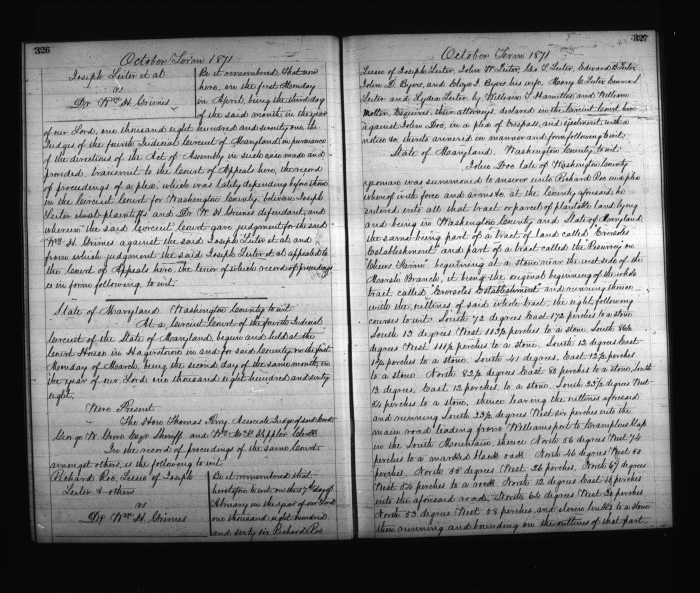 326
October Term 1871
Joseph Leiter et al
vs
Dr Wm H. Grimes
Be it remembered that now
here, on the first Monday
in April, being the third day
of the said month, in the year
of our Lord, one thousand eight hundred and seventy one, the
Judges of the fourth Judicial Circuit of Maryland, in pursuance
of the directions of the Act of Assembly in such case made and
provided, transmit to the Court of Appeals here, the record
of proceedings of a plea, which was lately depending before them
in the Circuit Court for Washington County, between Joseph
Leiter et al plaintiffs and Dr W. H. Grimes defendant, and
wherein the said Circuit Court gave judgment for the said
Wm H. Grimes against the said Joseph Leiter et al, and
from which judgment the said Joseph Leiter et al appealed to
the Court of Appeals here, the tenor of which record of proceedings
is in form following, to wit:
State of Maryland Washington County to wit:
At a Circuit Court of the fourth Judicial
Circuit of the State of Maryland, begun and held at the
Court House in Hagerstown in and for said County, on the first
Monday of March, being the second day of the same month, in
the year of our Lord one thousand eight hundred and sixty
eight.
Were Present
The Hon Thomas Perry Associate Judge of said Court
George W. Grove Esqr Sheriff and Wm McK Keppler Clerk
In the record of proceedings of the same Court
amongst others, is the following to wit
Richard Roe, Lessee of Joseph
Leiter & others
vs
Dr Wm H. Grimes
Be it remembered that
heretofore to wit on the 17th day of
February in the year of our Lord
one thousand eight hundred
and sixty six Richard Roe
327
October Term 1871
Lessee of Joseph Leiter, John W Leiter, Geo. L Leiter, Edward E Leiter
John D. Byers, and Eliza I. Byers his wife, Mary C Leiter Emma L
Leiter and Lydia Leiter, by William T Hamilton and William
Motter, Esquires, their attorneys, declared in the Circuit Court here
against John Doe, in a plea of trespass, and ejectment with a
notice &c thereto annexed in manner and form following to wit
State of Maryland, Washington County to wit:
John Doe late of Washington County
yeoman was summoned to answer unto Richard Roe in a plea
wherefore with force and arms &c at the County aforesaid he
entered into all that tract or parcel of plantable land lying
and being in Washington County and State of Maryland
the same being part of a tract of land called
Establishment and part of a tract called the
beginning at a stone near the west side of the
Marsh Branch, it being the original beginning of the whole
tract called Establishment and running thence
with the outlines of said whole tract, the eight following
courses to wit South 72 degrees East 172 perches to a stone
South 13 degrees West 113½ perches to a stone South 86½
degrees West 111½ perches to a stone, South 12 degrees East
perches to a stone, South 41 degrees, East 12½ perches
to a stone North 82½ degrees East 80 perches to a stone, South
13 degrees, East 12 perches to a stone, South 23½ degrees West
perches to a stone, thence leaving the outlines aforesaid
and running South 23½ degrees West six perches into the
main road leading from Williamsport to Cramptons Gap
in the South Mountain, thence North 56 degrees West 74
perches to a marked black oak North 46 degrees West 50
perches, North 38 degrees West 26 perches, North 67 degrees
West 54 perches to a rock North 12 degrees East 14 perches
into the aforesaid road, North 64 degrees West 20 perches
North 53 degrees West 58 perches, and eleven links to a stone
then running and bounding on the outlines of that part